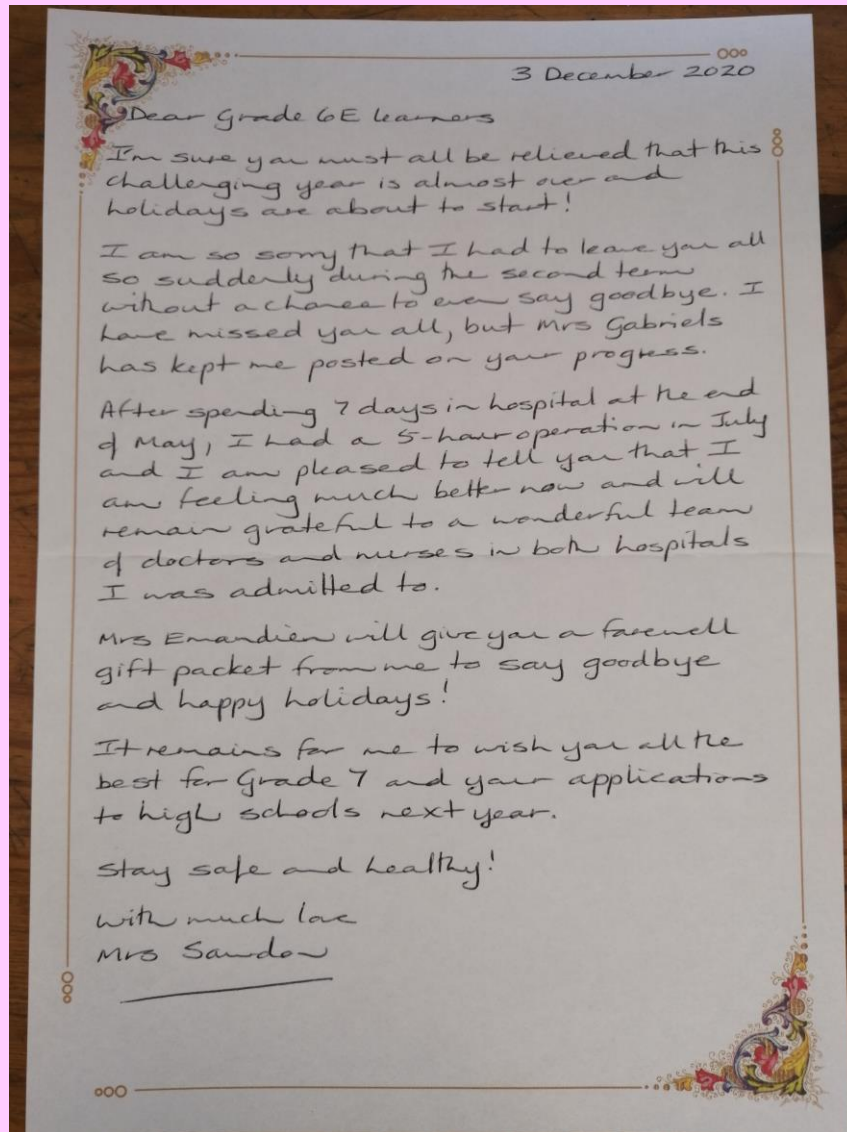 3 December 2020
Dear Grade 6E learners
I'm sure you must all be relieved that this
challenging year is almost over and
holidays are about to start!
I am so sorry that I had to leave you all
so suddenly during the second term
without a chance to even say goodbye. I
have missed you all, but Mrs Gabriels
has kept me posted on your progress.
After spending 7 days in hospital at the end
of May, I had a 5-hour operation in July
and I am pleased to tell you that I
am feeling much better now and will
remain grateful to a wonderful team
of doctors and nurses in both hospitals
I was admitted to.
Mrs Emandien will give you a farewell
gift packet from me to say goodbye
and happy holidays!
It remains for me to wish you all the
best for Grade 7 and your applications
to high schools next year.
Stay safe and healthy!
With much love
Mrs Sawdon